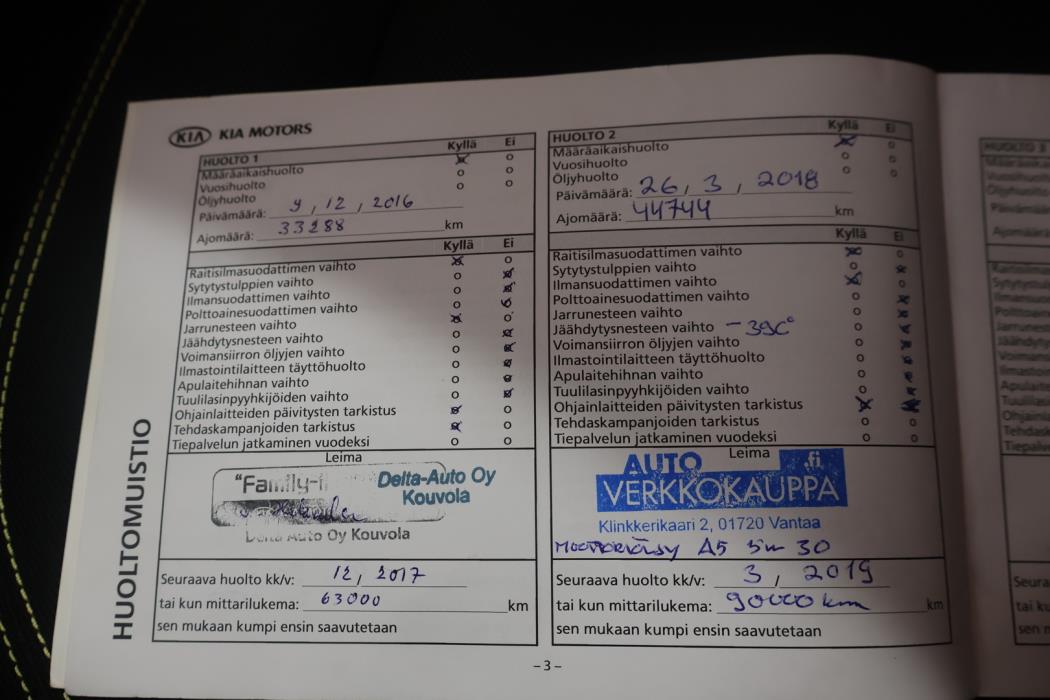 KIA KIA MOTORS
HUOLTO 1 Kyllä Ei
Määräaikaishuolto
Vuosihuolto
Öljyhuolto
Päivämäärä: 9, 12, 2016
Ajomäärä: 33288 km
Kyllä Ei
Raitisilmasuodattimen vaihto
Sytytystulppien vaihto
Ilmansuodattimen vaihto
Polttoainesuodattimen vaihto
Jarrunesteen vaihto
Jäähdytysnesteen vaihto
Voimansiirron öljyjen vaihto
Ilmastointilaitteen täyttöhuolto
Apulaitehihnan vaihto
Tuulilasinpyyhkijöiden vaihto
Ohjainlaitteiden päivitysten tarkistus
Tehdaskampanjoiden tarkistus
Tiepalvelun jatkaminen vuodeksi
Leima
"Family-
Delta-Auto Oy
Kouvola
Delta Auto Oy Kouvola
Seuraava huolto kk/v: 12, 2017
tai kun mittarilukema: 63000 km
sen mukaan kumpi ensin saavutetaan
HUOLTO 2 Kyllä Ei
Määräaikaishuolto
Vuosihuolto
Öljyhuolto
Päivämäärä: 26, 3, 2018
Ajomäärä: 44744 km
Kyllä Ei
Raitisilmasuodattimen vaihto
Sytytystulppien vaihto
Ilmansuodattimen vaihto
Polttoainesuodattimen vaihto
Jarrunesteen vaihto
Jäähdytysnesteen vaihto -39C°
Voimansiirron öljyjen vaihto
Ilmastointilaitteen täyttöhuolto
Apulaitehihnan vaihto
Tuulilasinpyyhkijöiden vaihto
Ohjainlaitteiden päivitysten tarkistus
Tehdaskampanjoiden tarkistus
Tiepalvelun jatkaminen vuodeksi
Leima
AUTO .fi
VERKKOKAUPPA
Klinkkerikaari 2, 01720 Vantaa
A5 5w 30
Seuraava huolto kk/v: 3, 2019
tai kun mittarilukema: 90000 km km
sen mukaan kumpi ensin saavutetaan
HUOLTOMUISTIO
-3-
HUOLTO 3